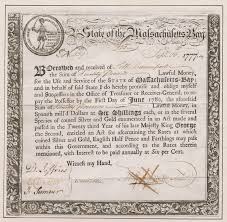 State of the Massachusetts Bay.
1777
Borrowed and received of
the Sum of Pounds Lawful Money,
for the Use and Service of the State of Massachusetts-Bay;
and in behalf of said State I do hereby promise and oblige myself
and Successors in the Office of Treasurer or Receiver-General, to repay
the Possessor by the First Day of June 1780, Lawful Money,
in Spanish mill'd Dollars at Six Shillings each, or in the several
Species of coined Silver and Gold enumerated in an Act made and
passed in the Twenty third Year of his late Majesty King George
the Second, entitled an Act for ascertaining the Rates at which
coined Silver and Gold, English Half Pence and Farthings may pass
within this Government, and according to the Rates therein
mentioned, with Interest to be paid annually at Six per Cent.
Witness my Hand,